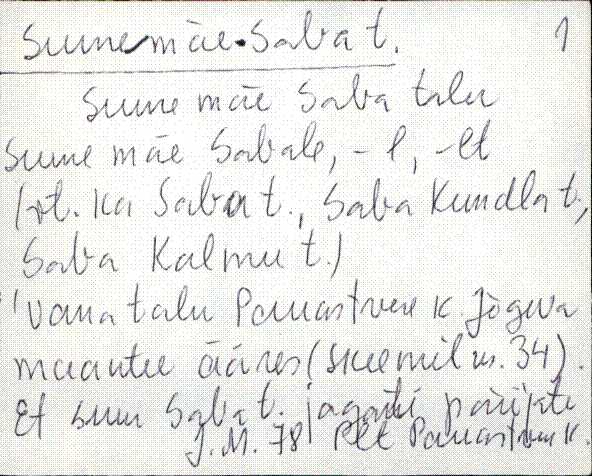 Suuremäe-Saba t. 1
Suure mäe Saba talu
Suure mäe Sabale, -l, -lt
(vt. ka Saba t., Saba Kundla t.,
Saba Kalmu t.)
'Vana talu Panastvere k. Jõgeva
maantee ääres (skeemil nr. 34).
Et suur Saba t. jagati pärijate
J.M. 78 Plt Panastvere k.